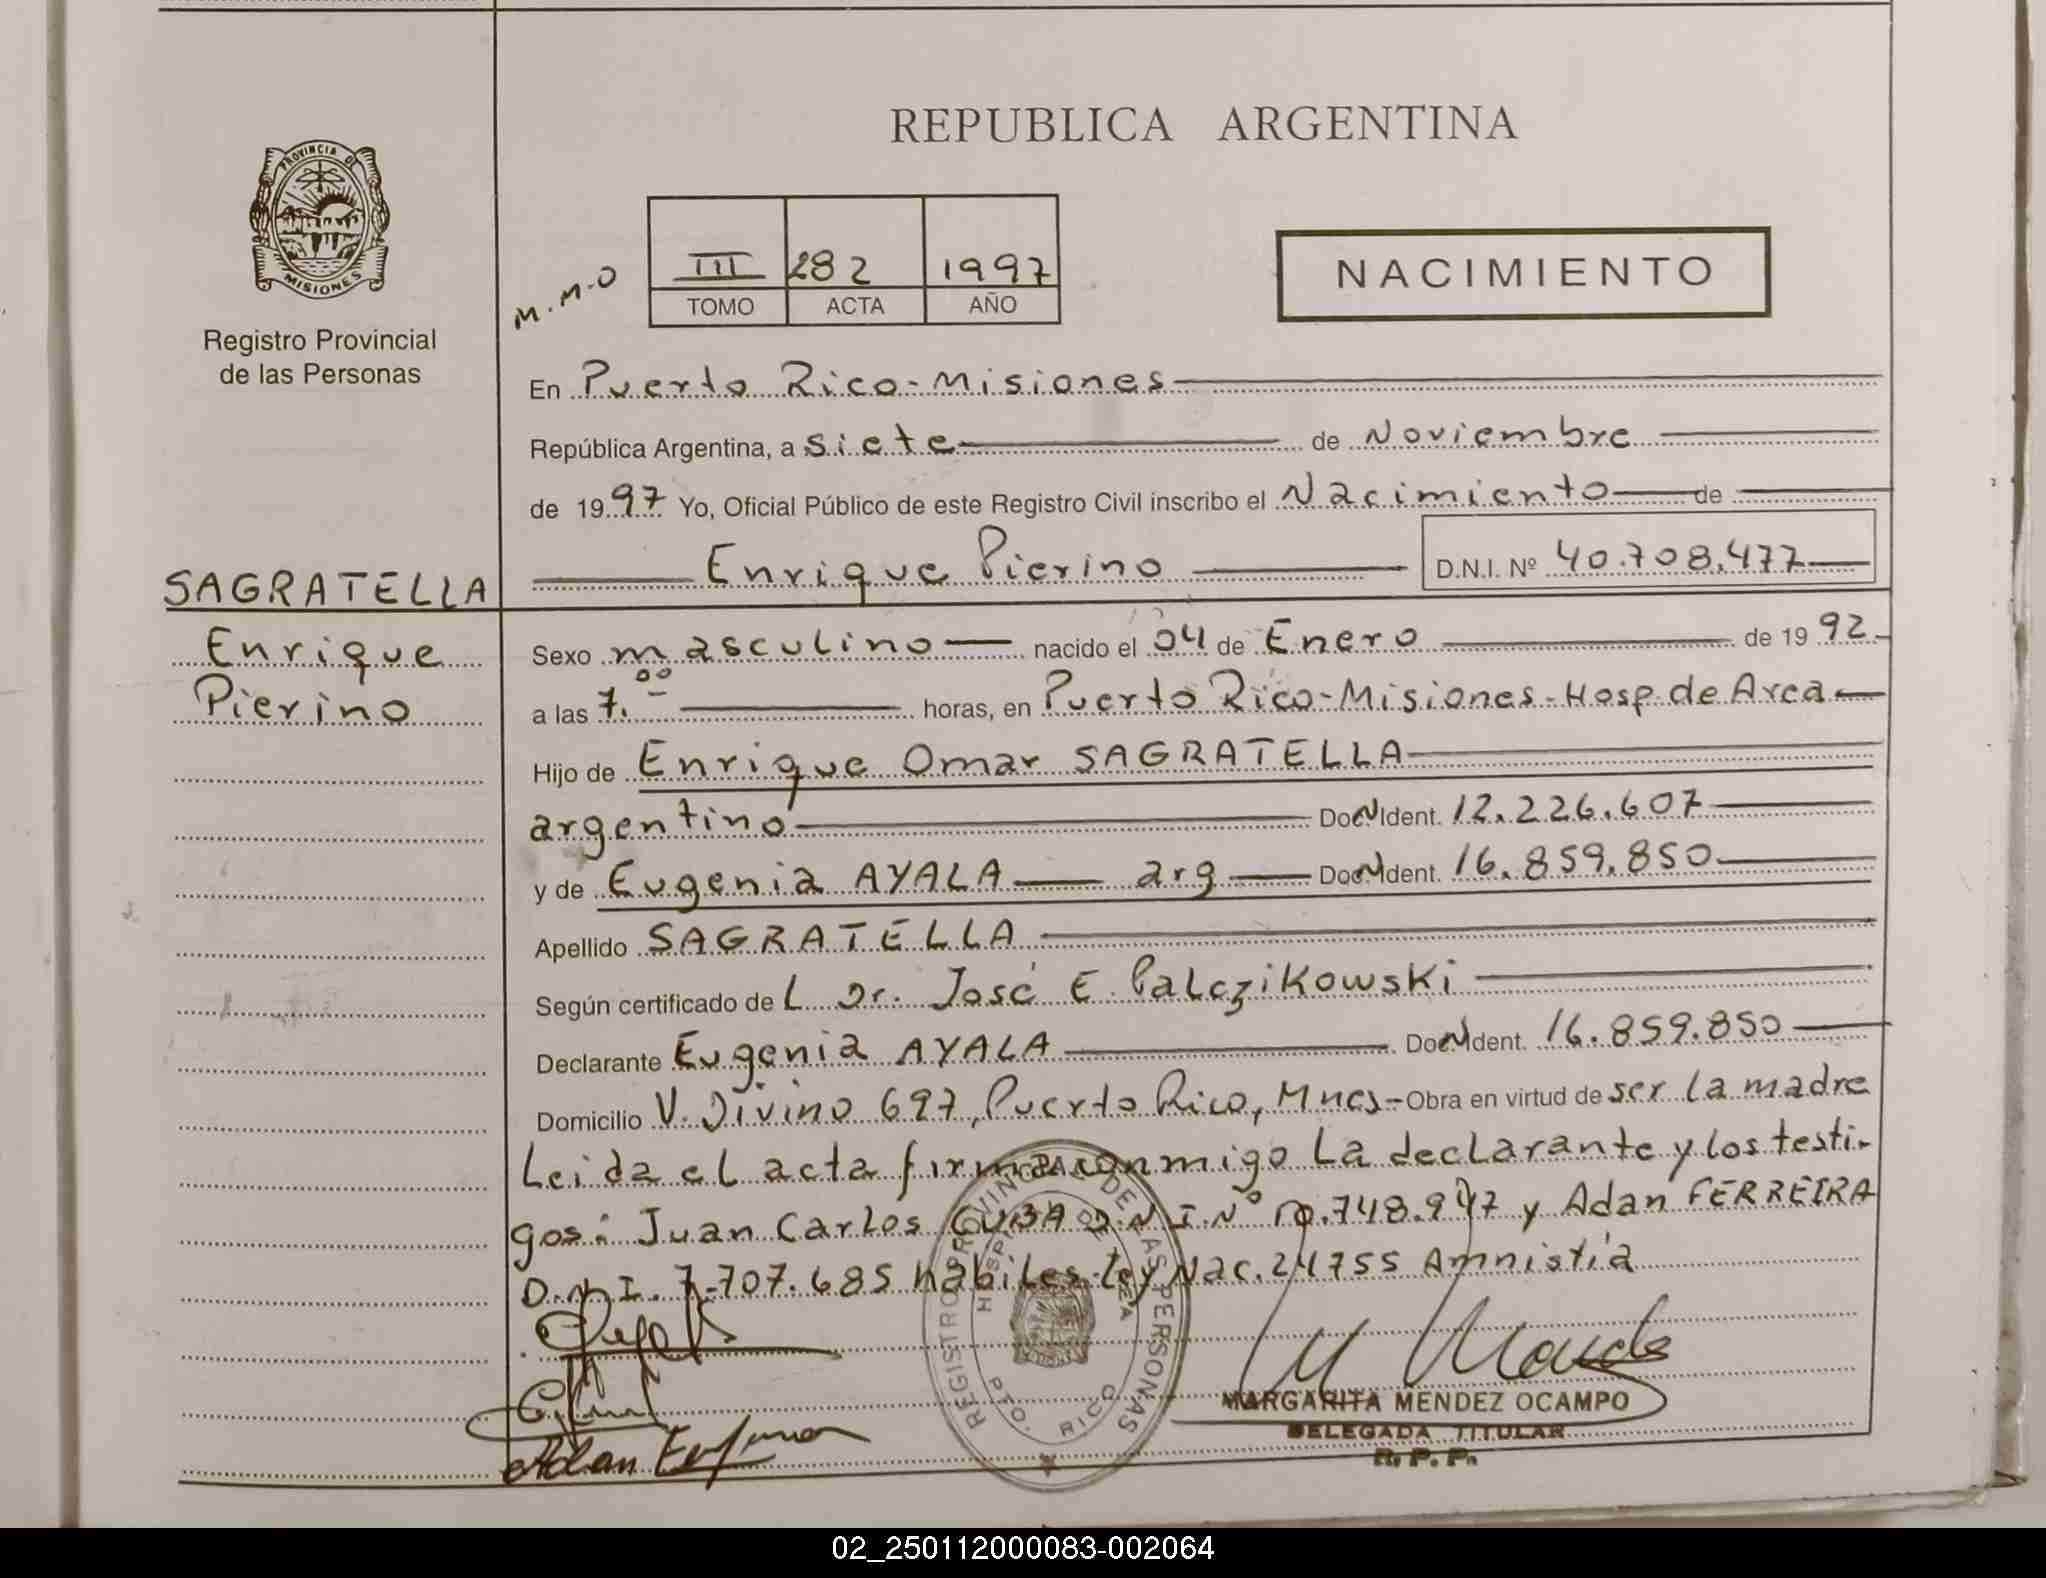 REPUBLICA ARGENTINA
PROVINCIA DE
MISIONES
Registro Provincial
de las Personas
M.M.O
III 282 1997
TOMO ACTA AÑO
NACIMIENTO
En Puerto Rico-Misiones
República Argentina, a siete de Noviembre
de 1997 Yo, Oficial Público de este Registro Civil inscribo el Nacimiento de
Enrique Pierino D.N.I. Nº 40.708.477
SAGRATELLA
Enrique
Pierino
Sexo masculino nacido el 04 de Enero de 1992
a las 7.00 horas, en Puerto Rico-Misiones-Hosp.de Area
Hijo de Enrique Omar SAGRATELLA
argentino Doc.Ident. 12.226.607
y de Eugenia AYALA arg Doc.Ident. 16.859.850
Apellido SAGRATELLA
Según certificado de L Dr. José E. Palczikowski
Declarante Eugenia AYALA Doc.Ident. 16.859.850
Domicilio V. Divino 697, Puerto Rico, Mnes- Obra en virtud de ser la madre
Leida el acta firma conmigo La declarante y los testi-
gos: Juan Carlos CUBA D.N.I.Nº y Adan FERREIRA
D.N.I. 7.707.685 habiles-Ley Nac.24755 Amnistía
REGISTRO PROVINCIAL DE LAS PERSONAS
HOSPITAL DE AREA
PTO. RICO
MARGARITA MENDEZ OCAMPO
DELEGADA TITULAR
R. P. P.
Adan
02_250112000083-002064